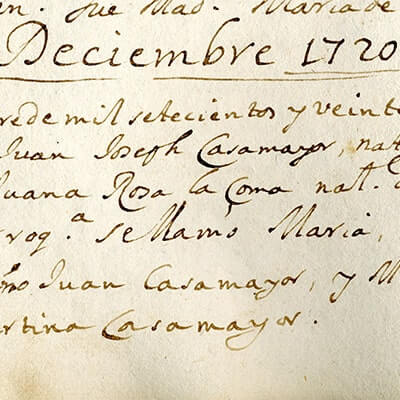 n. fue Mad. Maria de
Deciembre 1720
re de mil setecientos y veinte
Juan Joseph Casamayor, nat
Juana Rosa la Coma nat.
roq.a se llamó Maria,
Juan Casamayor, y M
rtina Casamayor.